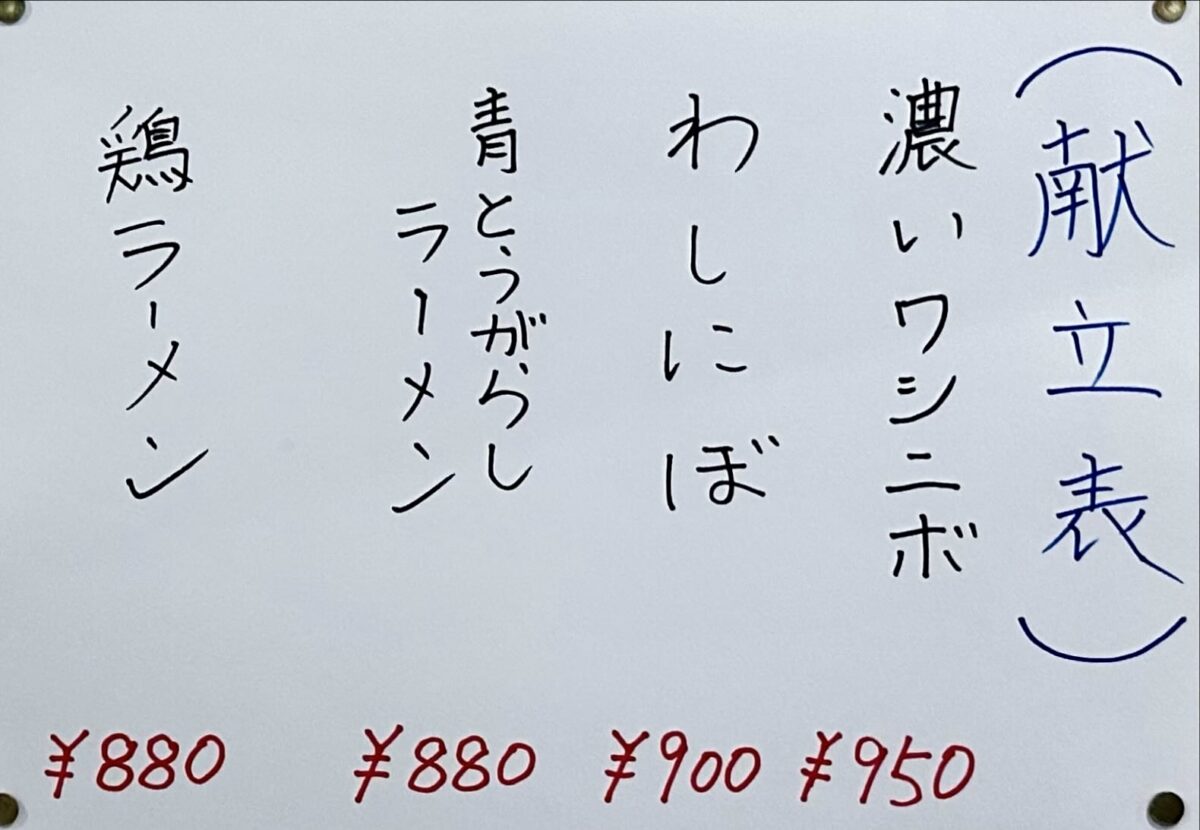 （献立表）
濃いワシニボ
¥950
わしにぼ
¥900
青とうがらし
ラーメン
¥880
鶏ラーメン
¥880